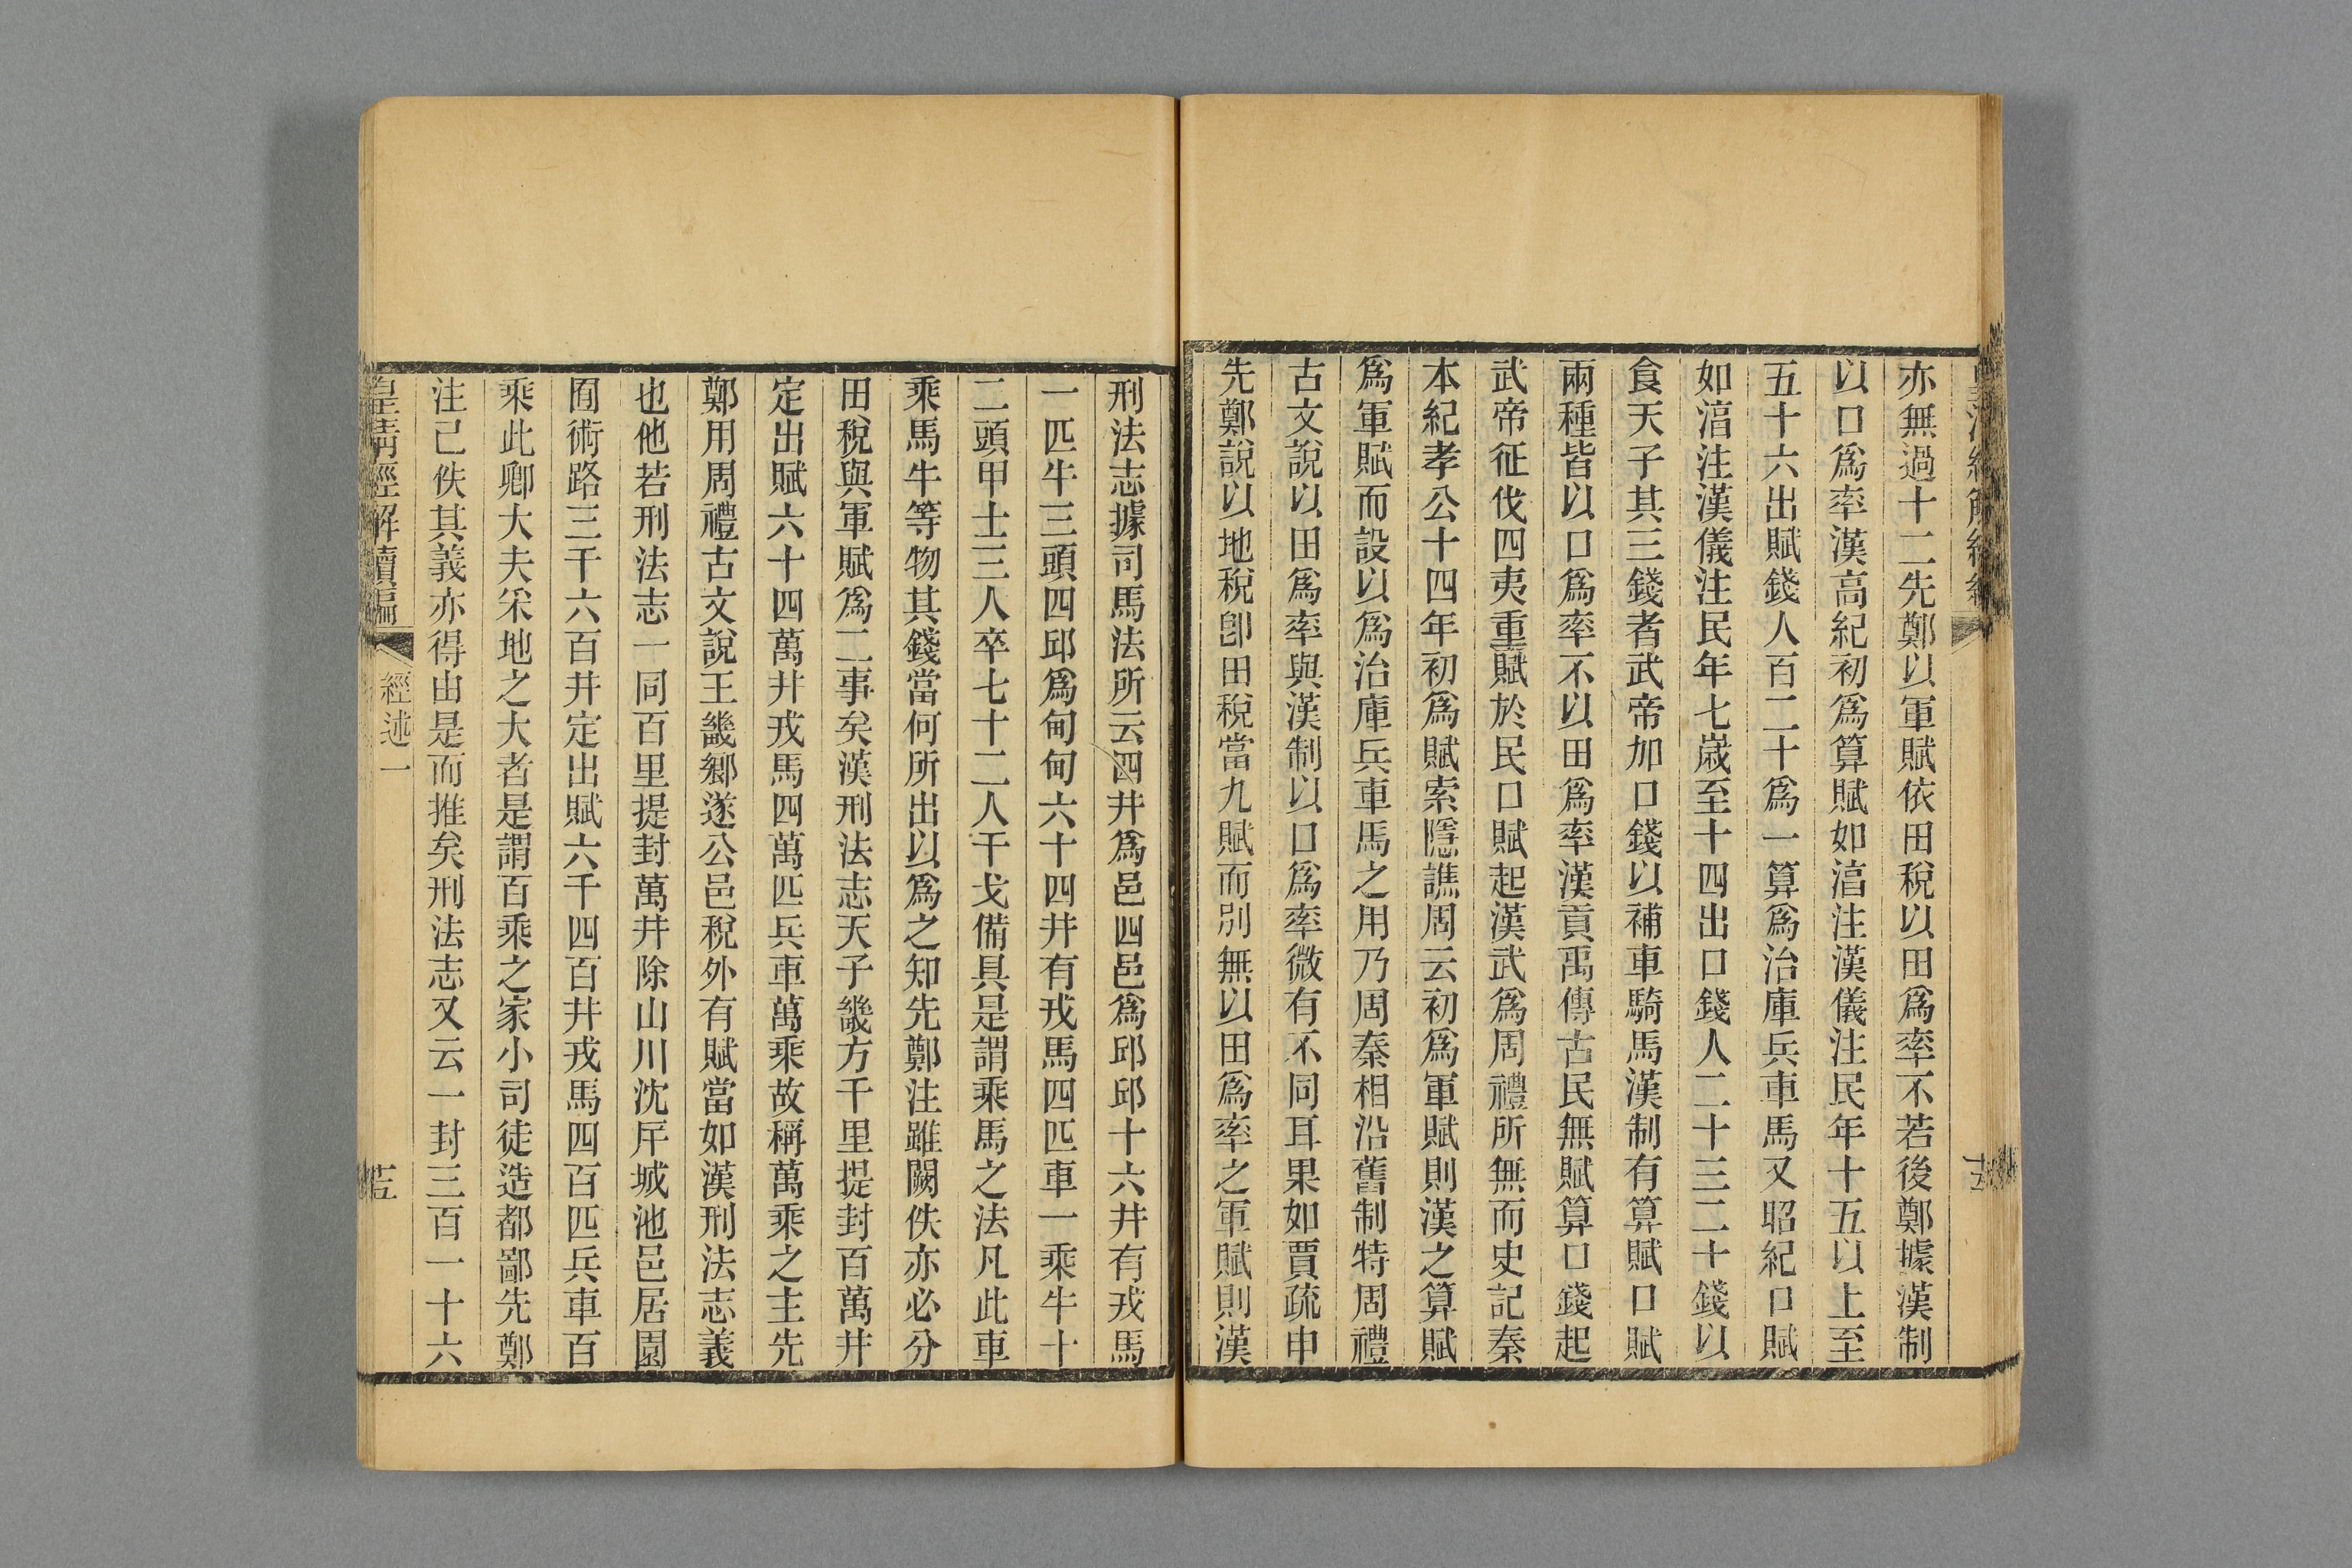 亦無過十二先鄭以軍賦依田稅以田爲率不若後鄭據漢制
以口爲率漢高紀初爲算賦如淳注漢儀注民年十五以上至
五十六出賦錢人百二十爲一算爲治庫兵車馬又昭紀口賦
如淳注漢儀注民年七歲至十四出口錢人二十三二十錢以
食天子其三錢者武帝加口錢以補車騎馬漢制有算賦口賦
兩種皆以口爲率不以田爲率漢貢禹傳古民無賦算口錢起
武帝征伐四夷重賦於民口賦起漢武爲周禮所無而史記秦
本紀孝公十四年初爲賦索隱譙周云初爲軍賦則漢之算賦
爲軍賦而設以爲治庫兵車馬之用乃周秦相沿舊制特周禮
古文說以田爲率與漢制以口爲率微有不同耳果如賈疏申
先鄭說以地稅卽田稅當九賦而別無以田爲率之軍賦則漢
刑法志據司馬法所云四井爲邑四邑爲邱邱十六井有戎馬
一匹牛三頭四邱爲甸甸六十四井有戎馬四匹車一乘牛十
二頭甲士三人卒七十二人干戈備具是謂乘馬之法凡此車
乘馬牛等物其錢當何所出以爲之知先鄭注雖闕佚亦必分
田稅與軍賦爲二事矣漢刑法志天子畿方千里提封百萬井
定出賦六十四萬井戎馬四萬匹兵車萬乘故稱萬乘之主先
鄭用周禮古文說王畿鄉遂公邑稅外有賦當如漢刑法志義
也他若刑法志一同百里提封萬井除山川沈斥城池邑居園
囿術路三千六百井定出賦六千四百井戎馬四百匹兵車百
乘此卿大夫采地之大者是謂百乘之家小司徒造都鄙先鄭
注已佚其義亦得由是而推矣刑法志又云一封三百一十六
皇清經解續編 經述一